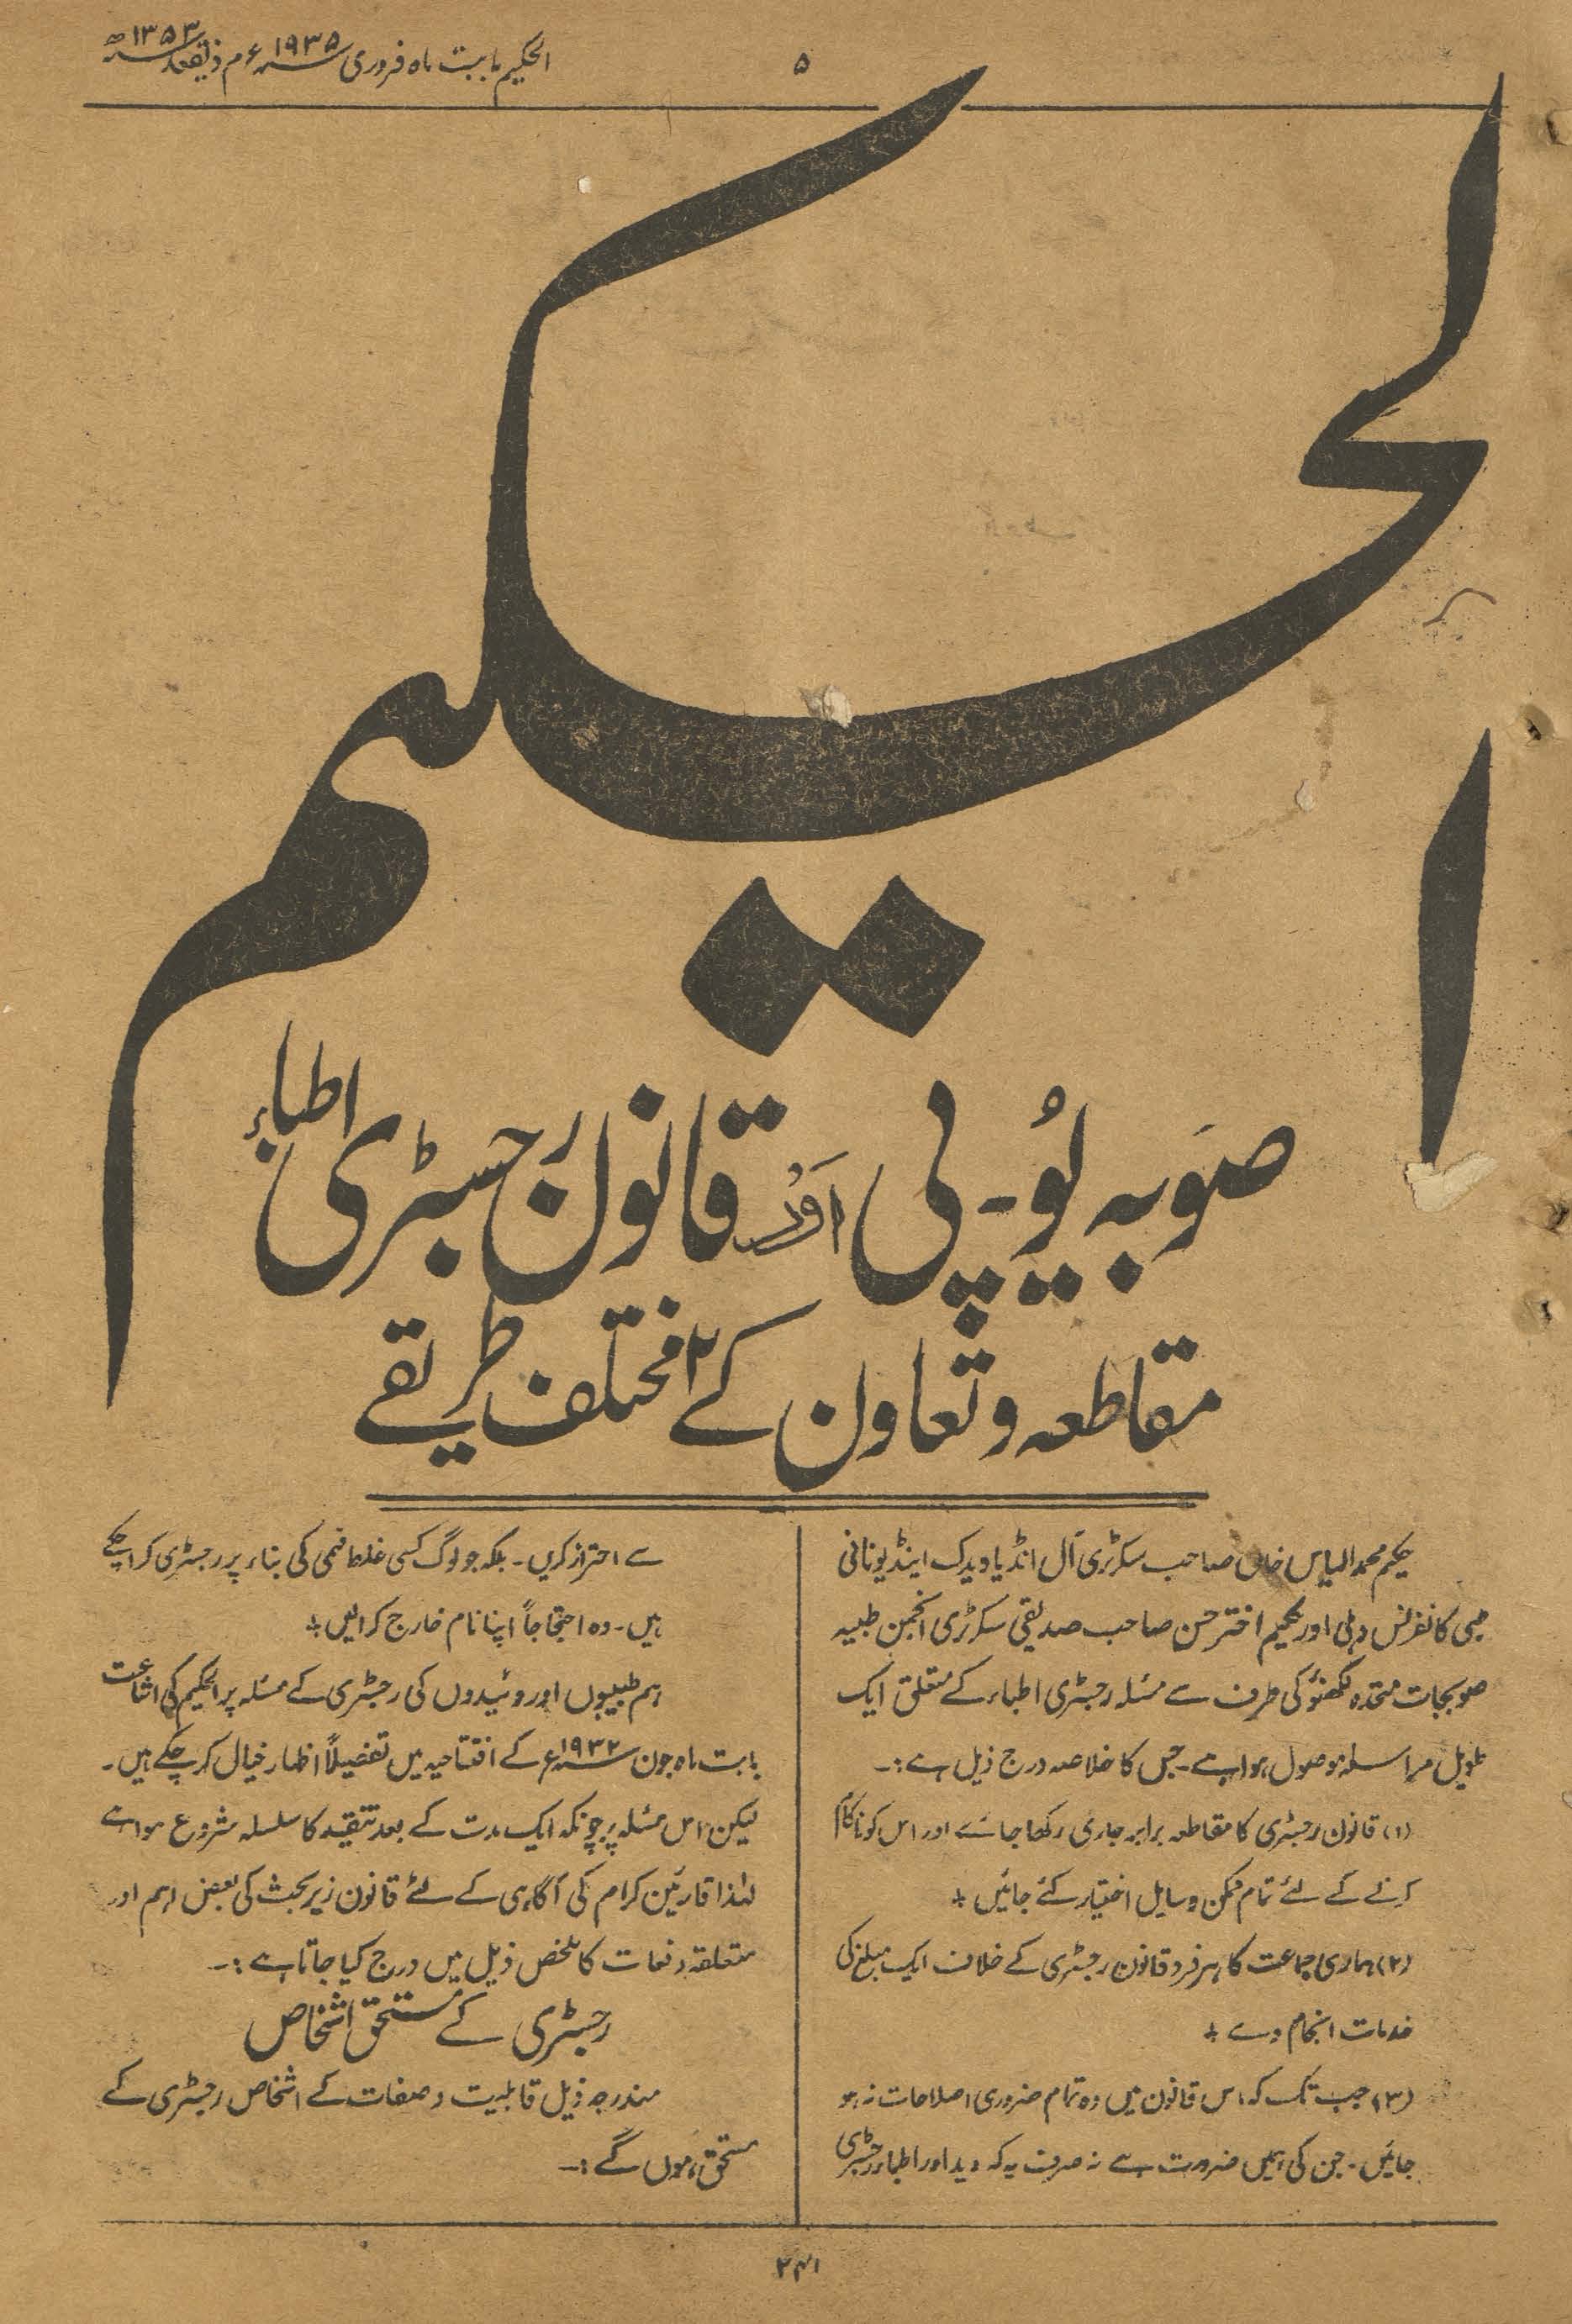 الحکیم بابت ماہ فروری ۱۹۳۵ء م ذیقعدہ ۱۳۵۳ھ
۵
الحکیم
صوبہ یو۔پی اور قانون رجسٹری اطباء
مقاطعہ و تعاون کے ۲ مختلف طریقے
حکیم محمد الیاس خاں صاحب سکرٹری آل انڈیا ویدک اینڈ یونانی
طبی کانفرنس دہلی اور حکیم اختر حسن صاحب صدیقی سکرٹری انجمن طبیہ
صوبجات متحدہ لکھنؤ کی طرف سے مسئلہ رجسٹری اطباء کے متعلق ایک
طویل مراسلہ موصول ہوا ہے۔ جس کا خلاصہ درج ذیل ہے:۔
(۱) قانون رجسٹری کا مقاطعہ برابر جاری رکھا جائے اور اس کو ناکام
کرنے کے لئے تمام ممکن وسایل اختیار کئے جائیں +
(۲) ہماری جماعت کا ہر فرد قانون رجسٹری کے خلاف ایک مبلغ کی
خدمات انجام دے +
(۳) جب تک کہ اس قانون میں وہ تمام ضروری اصلاحات نہ ہو
جائیں۔ جن کی ہمیں ضرورت ہے نہ صرف یہ کہ وید اور اطباء رجسٹری
سے احتراز کریں۔ بلکہ جو لوگ کسی غلط فہمی کی بناء پر رجسٹری کرا چکے
ہیں۔ وہ احتجاجاً اپنا نام خارج کرالیں +
ہم طبیبوں اور وئیدوں کی رجسٹری کے مسئلہ پر الحکیم کی اشاعت
بابت ماہ جون ۱۹۳۲ء کے افتتاحیہ میں تفصیلاً اظہار خیال کر چکے ہیں۔
لیکن اس مسئلہ پر چونکہ ایک مدت کے بعد تنقید کا سلسلہ شروع ہوا ہے
لہٰذا قارئین کرام کی آگاہی کے لئے قانون زیر بحث کی بعض اہم اور
متعلقہ دفعات کا ملخص ذیل میں درج کیا جاتا ہے:۔
رجسٹری کے مستحق اشخاص
مندرجہ ذیل قابلیت و صفات کے اشخاص رجسٹری کے
مستحق ہوں گے:۔
۲۴۱